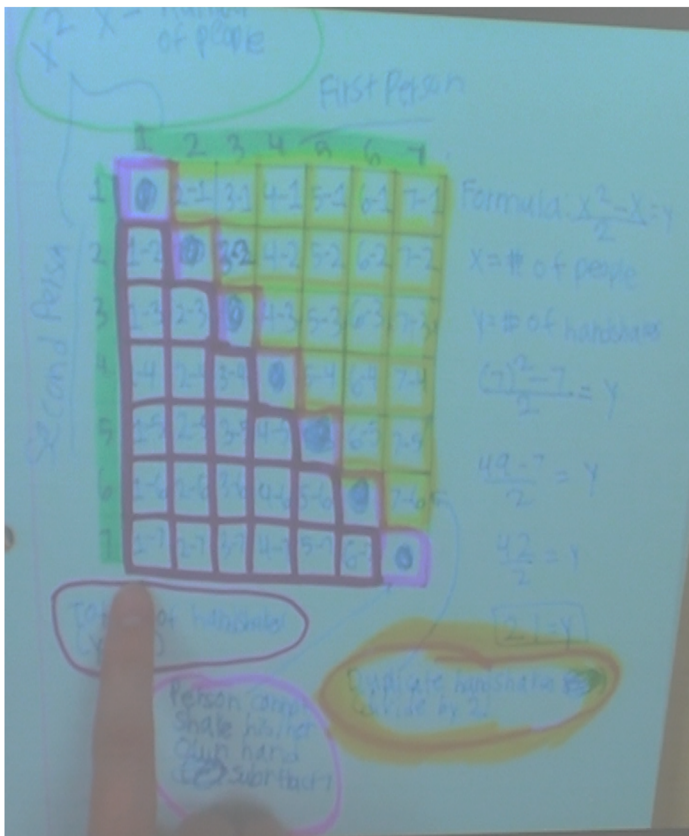 x² x =
of people
First Person
1 2 3 4 5 6 7
1 0 2-1 3-1 4-1 5-1 6-1 7-1
2 1-2 0 3-2 4-2 5-2 6-2 7-2
3 1-3 2-3 0 4-3 5-3 6-3 7-3
4 1-4 2-4 3-4 0 5-4 6-4 7-4
5 1-5 2-5 3-5 4-5 0 6-5 7-5
6 1-6 2-6 3-6 4-6 5-6 0 7-6
7 1-7 2-7 3-7 4-7 5-7 6-7 0
Second Person
Formula: x²-x/2 = y
x = # of people
y = # of handshakes
(7)²-7/2 = y
49-7/2 = y
42/2 = y
21=y
of handshakes
Person
shake his/her
own hand
subtract
Duplicate handshake
divide by 2